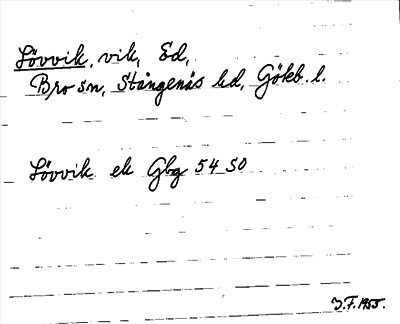 Lövvik, vik, Ed,
Bro sn, Stångenäs hd, Göteb. l.
Lövvik ek Gbg 54 50
I.F. 1955.